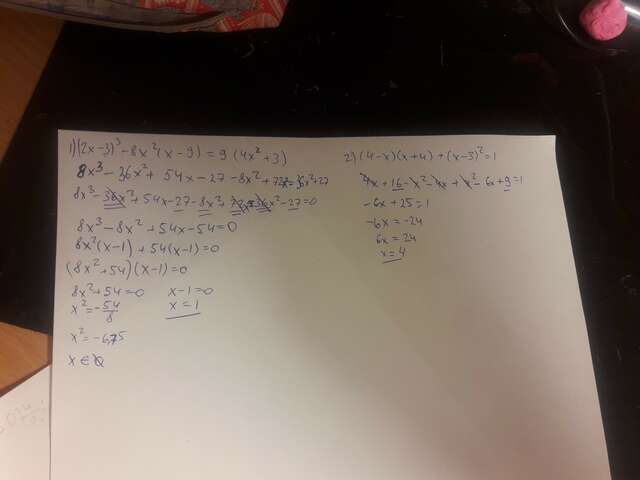 1)(2x-3)³-8x²(x-9)=9(4x²+3)
8x³-36x²+54x-27-8x²+72x=36x²+27
8x³-36x²+54x-27-8x²+72x²-36x²-27=0
8x³-8x²+54x-54=0
8x²(x-1)+54(x-1)=0
(8x²+54)(x-1)=0
8x²+54=0 x-1=0
x²=-54/8 x=1
x²=-6,75
x∈Q
2)(4-x)(x+4)+(x-3)²=1
4x+16-x²-4x+x²-6x+9=1
-6x+25=1
-6x=-24
6x=24
x=4